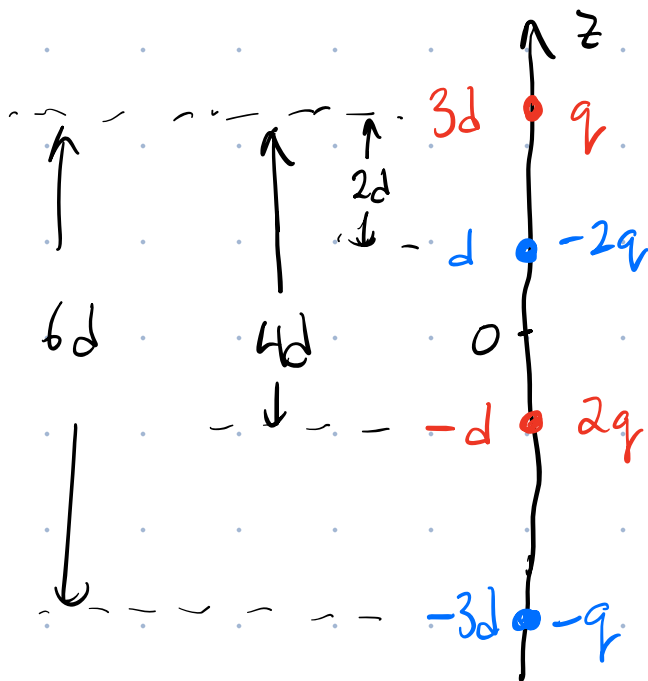 z
3d q
2d
d -2q
6d 4d 0
-d 2q
-3d -q